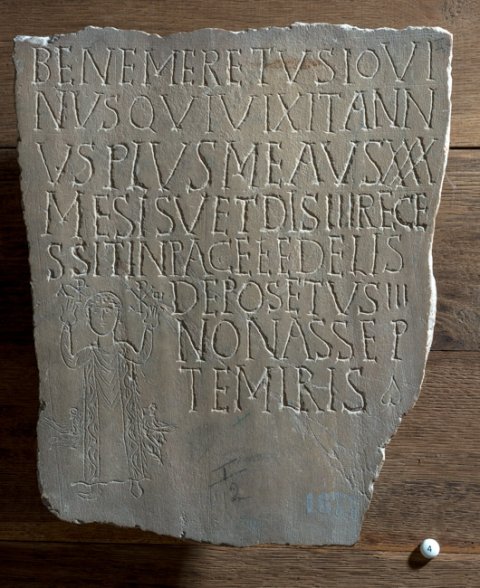 BENEMERETVSIOVI
NVSQVIVIXITANN
VSPLVSMEAVSXXX
MESISVETDISIIIRECE
SSITINPACEFEDELIS
DEPOSETVSIII
NONASSEP
TEMBRIS
4